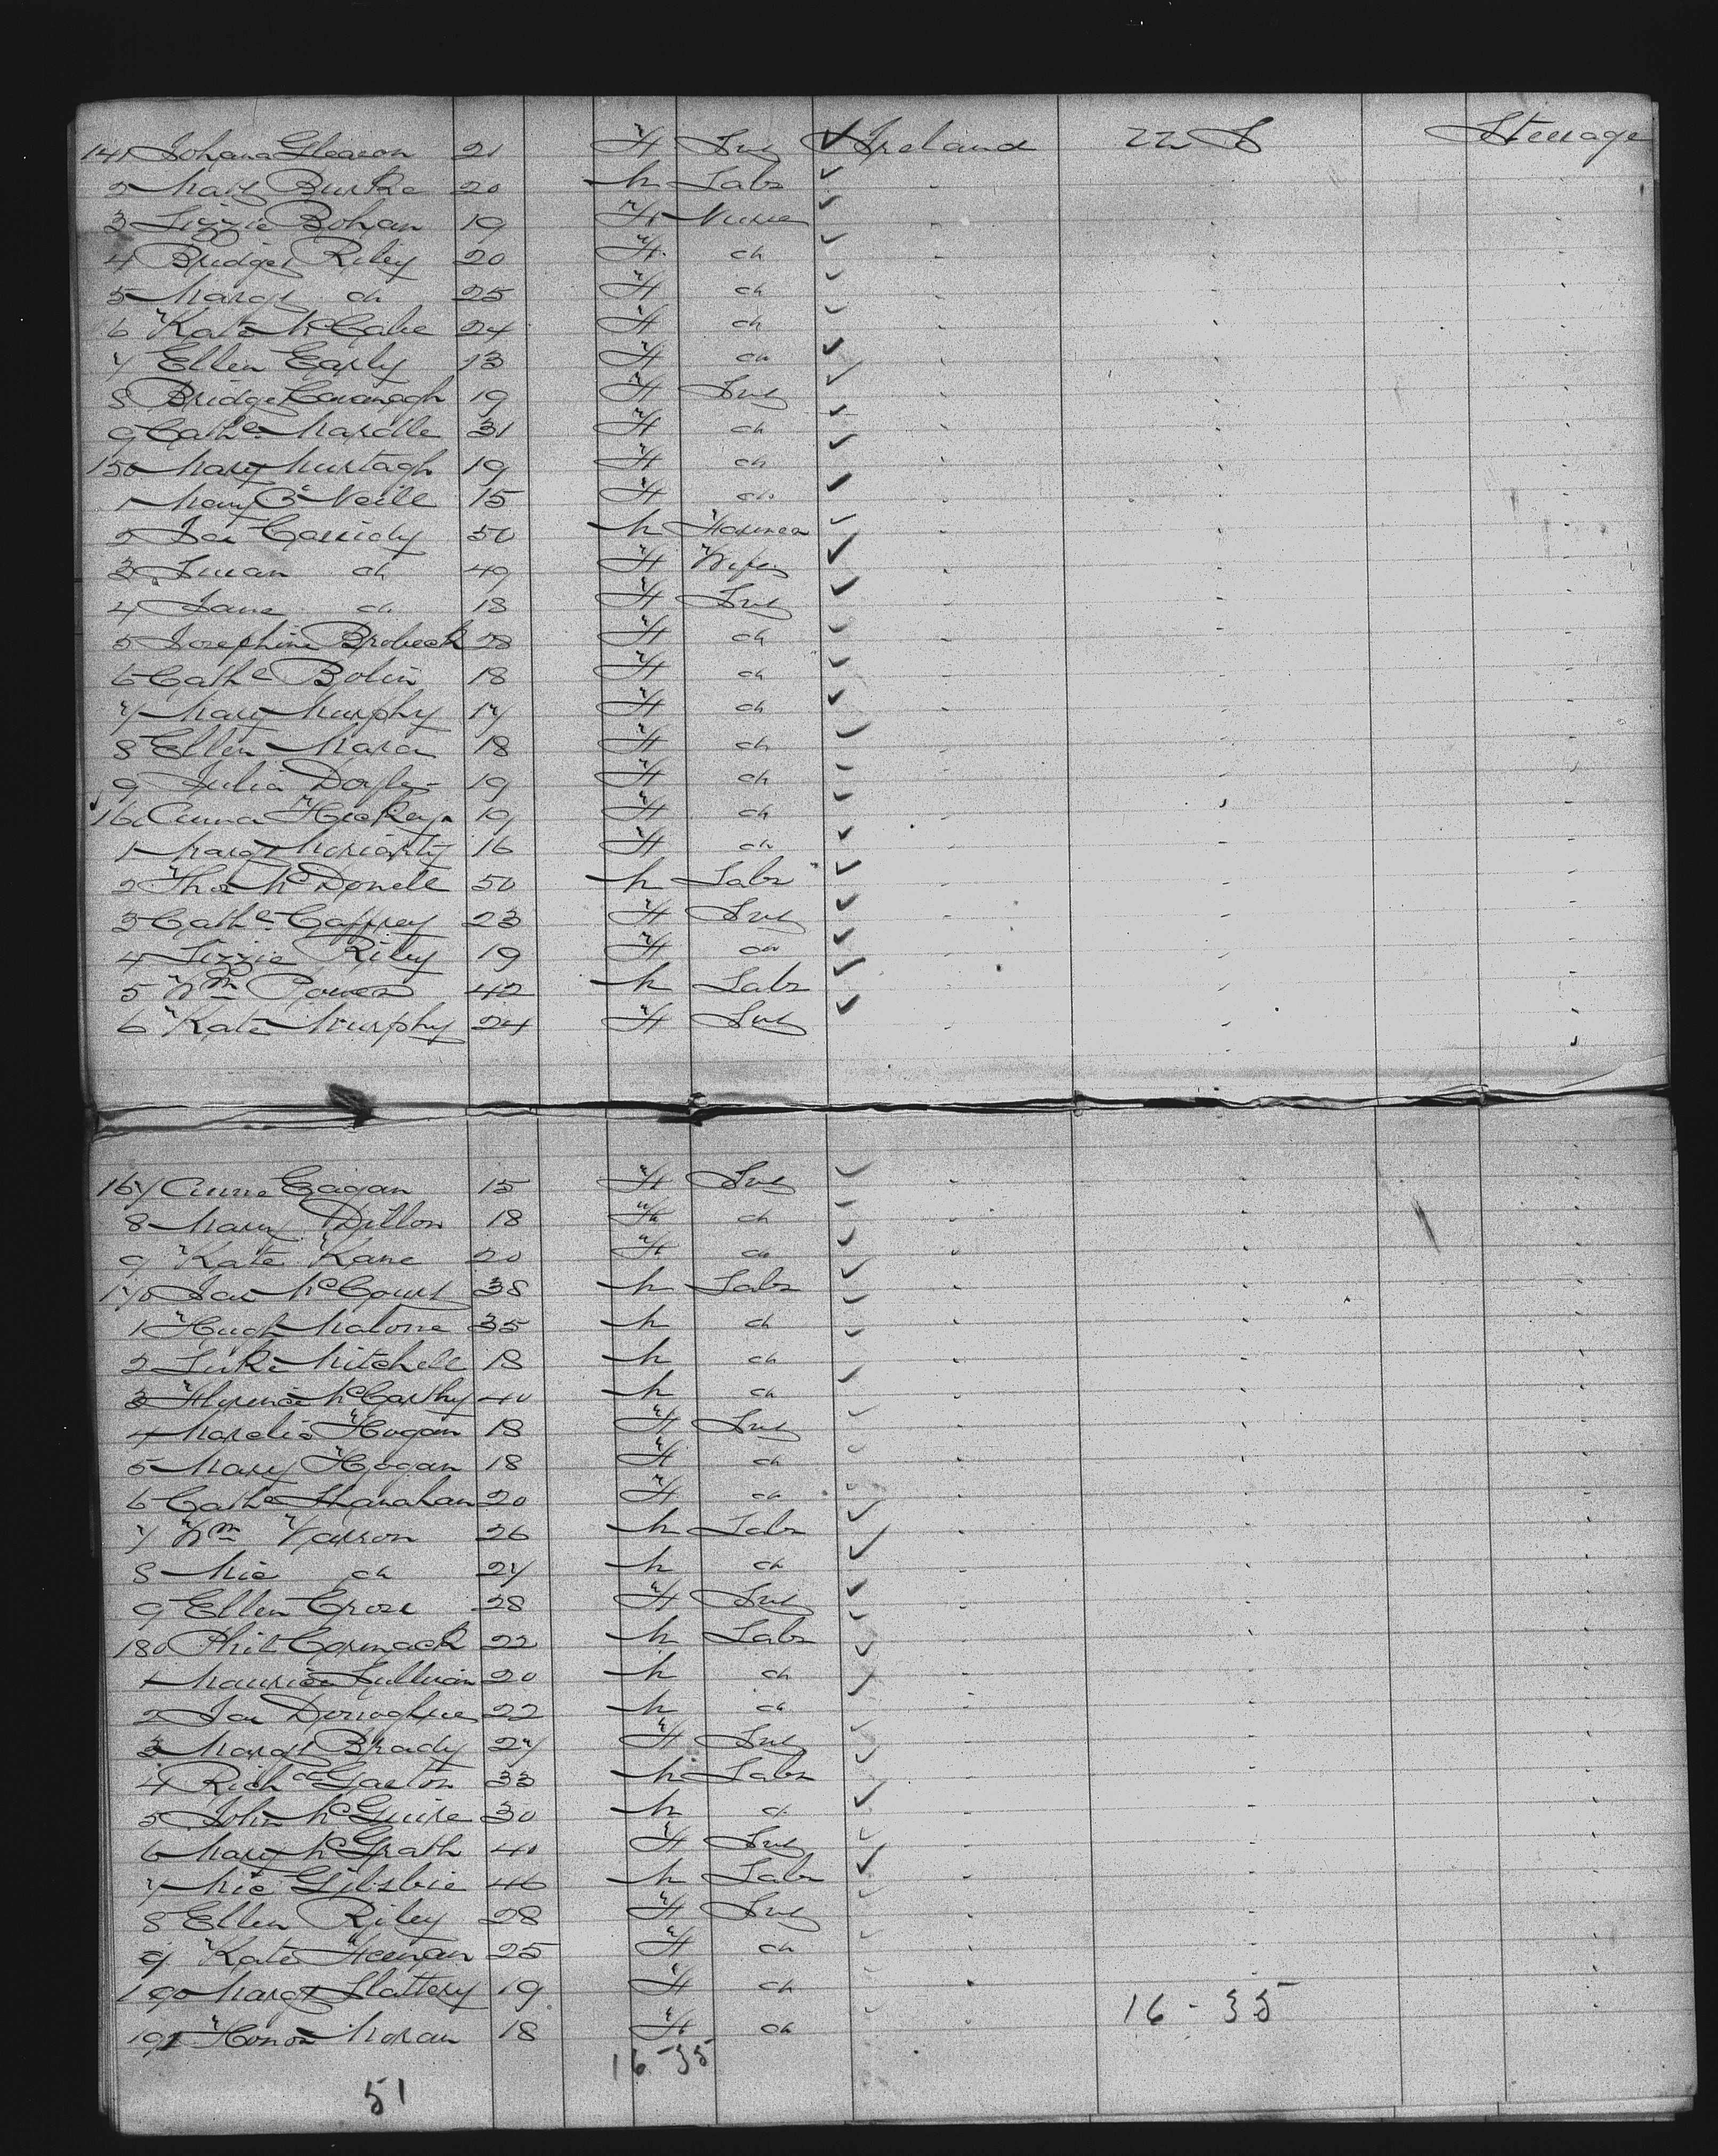 141 Johana Gleason 21 F Svt Ireland U S Steerage
2 Mary Burke 20 M Labr
3 Lizzie Bohan 19 F Nurse
4 Bridget Riley 20 F do
5 Margt do 25 F do
6 Kate McCabe 24 F do
7 Ellen Early 13 F do
8 Bridget Cavanagh 19 F Svt
9 Cathe Mardle 31 F do
150 Mary Murtagh 19 F do
1 Mary O'Neill 15 F do
2 Jas Cassidy 50 M Farmer
3 Susan do 49 F Wife
4 Jane do 18 F Svt
5 Josephine Brobeck 28 F do
6 Cathe Bolin 18 F do
7 Mary Murphy 17 F do
8 Ellen Mara 18 F do
9 Julia Doyle 19 F do
160 Anna Hickey 19 F do
1 Margt Moriarty 16 F do
2 Thos McDonell 50 M Labr
3 Cathe Caffrey 23 F Svt
4 Lizzie Riley 19 F do
5 Wm Power 42 M Labr
6 Kate Murphy 24 F Svt
167 Anne Eagan 15 F Svt
8 Mary Dillon 18 F do
9 Kate Kane 20 F do
170 Jas McCourt 38 M Labr
1 Hugh Malone 35 M do
2 Luke Mitchell 18 M do
3 Florence McCarthy 40 M do
4 Marelia Hogan 18 F Svt
5 Mary Hogan 18 F do
6 Cathe Shanahan 20 F do
7 Wm Varron 26 M Labr
8 Mic do 24 M do
9 Ellen Crose 28 F Svt
180 Phil Cormack 22 M Labr
1 Maurice Sullivan 20 M do
2 Jas Donoghue 22 M do
3 Margt Brady 27 F Svt
4 Richd Gaston 33 M Labr
5 John McGuire 30 M do
6 Mary McGrath 40 F Svt
7 Mic Gilsbie 46 M Labr
8 Ellen Riley 28 F Svt
9 Kate Heenan 25 F do
190 Margt Slattery 19 F do
191 Honor Moran 18 F do
16-35
16-35
51